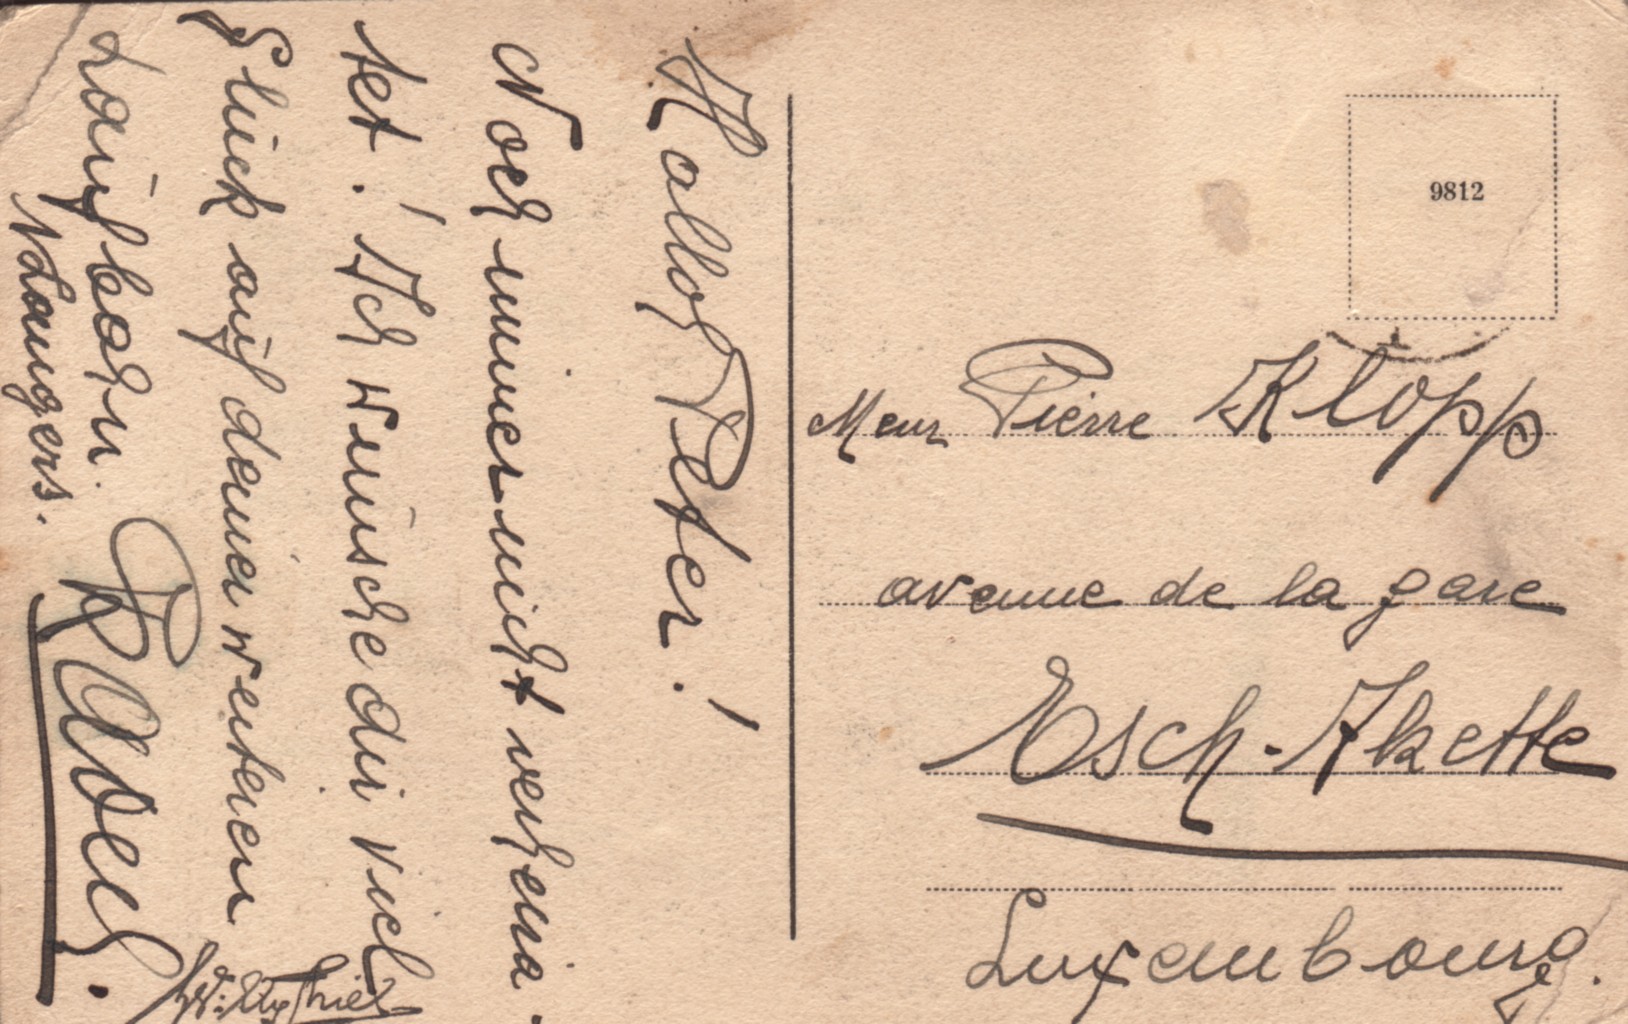 Hallo Peter!
Noch immer nicht verheira-
tet! Ich wünsche dir viel
Glück auf deiner weiteren
Laufbahn.
9812
Meur Pierre Klopp
avenue de la gare
Esch-Alzette
Luxembourg.